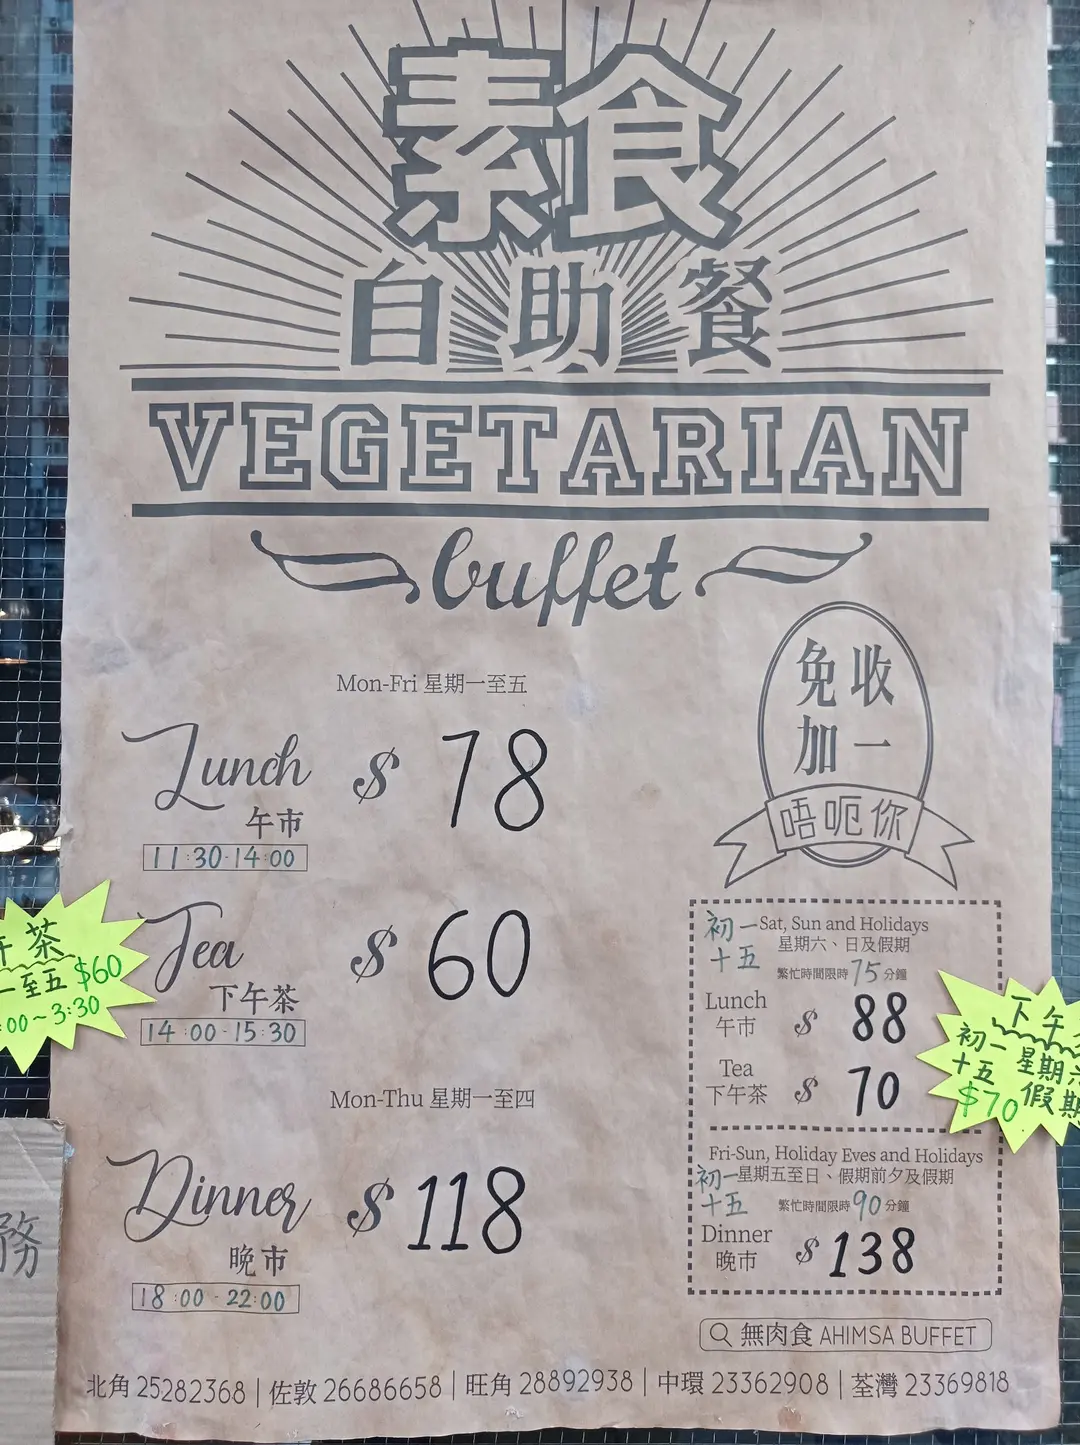 素食
自助餐
VEGETARIAN
buffet
免收
加一
唔呃你
Mon-Fri 星期一至五
Lunch $ 78
午市
11:30-14:00
Tea $ 60
下午茶
14:00-15:30
Mon-Thu 星期一至四
Dinner $ 118
晚市
18:00-22:00
初一
十五
Sat, Sun and Holidays
星期六、日及假期
繁忙時間限時75分鐘
Lunch
午市 $ 88
Tea
下午茶 $ 70
Fri-Sun, Holiday Eves and Holidays
初一
十五
星期五至日、假期前夕及假期
繁忙時間限時90分鐘
Dinner
晚市 $ 138
無肉食 AHIMSA BUFFET
北角 25282368 | 佐敦 26686658 | 旺角 28892938 | 中環 23362908 | 荃灣 23369818
午茶
一至五 $60
:00~3:30
下午
初一
十五
星期六
假期
$70
務